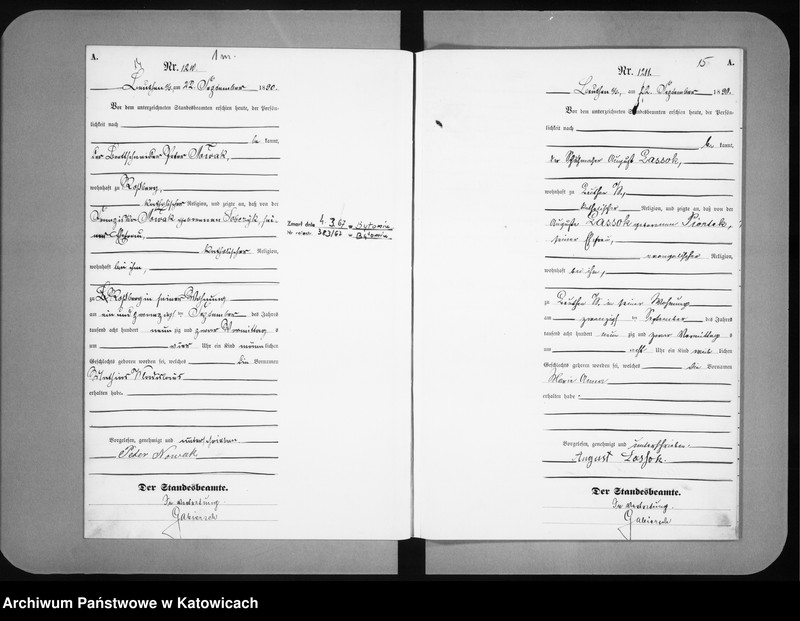 A.
1 m.
Nr. 1210.
Beuthen O/S, am 22. September 1890.
Vor dem unterzeichneten Standesbeamten erschien heute, der Persön-
lichkeit nach
be kannt,
der Peter Nowak,
wohnhaft zu Roßberg,
katholischer Religion, und zeigte an, daß von der
Nowak geborenen Sobczyk, sei-
ner Ehefrau,
katholischer Religion,
wohnhaft bei ihm,
zu Roßberg in seiner Wohnung
am ein und zwanzigsten September des Jahres
tausend acht hundert neun zig und zwar Vormittags
am Uhr ein Kind männlichen
Geschlechts geboren worden sei, welches die Vornamen
Mathias
erhalten habe.
Vorgelesen, genehmigt und unterschrieben.
Peter Nowak
Der Standesbeamte.
In Vertretung.
Gabiersch
Zmarł dnia 4. 3. 67 w Bytomiu
Nr 383/67 w Bytomiu
15
A.
Nr. 1211.
Beuthen O/S, am 22. September 1890.
Vor dem unterzeichneten Standesbeamten erschien heute, der Persön-
lichkeit nach
be kannt,
der August Lassok,
wohnhaft zu Beuthen
katholischer Religion, und zeigte an, daß von der
Auguste Lassok geborenen Piontek,
seiner Ehefrau,
evangelischer Religion,
wohnhaft bei ihm,
zu Beuthen in seiner Wohnung
am zwanzigsten September des Jahres
tausend acht hundert neun zig und zwar Vormittags
am acht Uhr ein Kind weib lichen
Geschlechts geboren worden sei, welches die Vornamen
Marie Anna
erhalten habe.
Vorgelesen, genehmigt und unterschrieben.
August Lassok.
Der Standesbeamte.
In Vertretung.
Gabiersch
Archiwum Państwowe w Katowicach